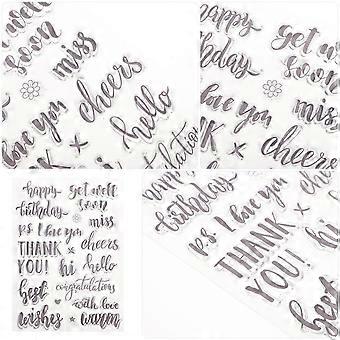 well
soon
miss
cheers
hello
happy
birthday
get well
soon
love you
miss
cheers
happy get well
birthday soon
miss
ps I love you
THANK × cheers
YOU! hi hello
best congratulations
with love
wishes × warm
happy
birthday
ps I love
THANK
YOU!
hi